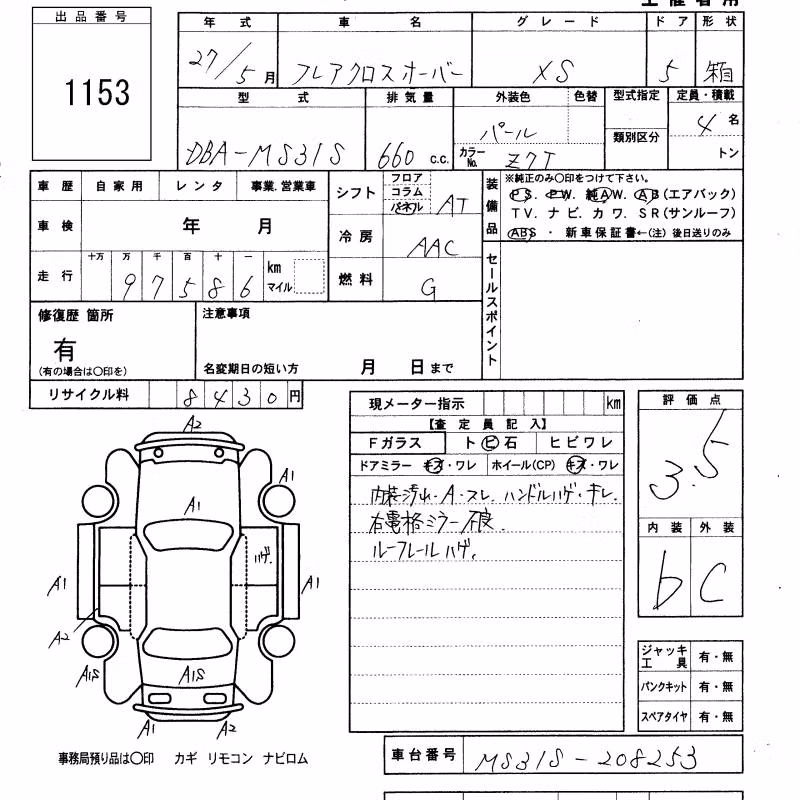 出品番号
1153
年式 車名 グレード ドア 形状
27/5月 フレアクロスオーバー XS 5 箱
型式 排気量 外装色 色替 型式指定 定員・積載
DBA-MS31S 660 c.c. パール 4名
カラーNo. Z7T 類別区分 トン
車歴 自家用 レンタ 事業.営業車
車検 年 月
走行 十万 万 千 百 十 一 km マイル
97586
シフト フロア コラム パネル AT
冷房 AAC
燃料 G
装備品 ※純正のみ○印をつけて下さい。
PS. PW. 純AW. AB(エアバック)
TV. ナビ. カワ. SR(サンルーフ)
ABS ・ 新車保証書←(注) 後日送りのみ
セールスポイント
修復歴 箇所
有
(有の場合は○印を)
注意事項
名変期日の短い方 月 日まで
リサイクル料 8430円
現メーター指示 km
【査定員記入】
Fガラス トビ石 ヒビワレ
ドアミラー キズ・ワレ ホイール(CP) キズ・ワレ
内装汚れ・A・スレ. ハンドルハゲ・キレ.
右電格ミラー不良.
ルーフレールハゲ.
評価点
3.5
内装 外装
b C
ジャッキ工具 有・無
パンクキット 有・無
スペアタイヤ 有・無
A2
A1
A1
ハゲ.
A1
A1
A2
A1S
A1S
A1
A2
事務局預り品は○印 カギ リモコン ナビロム
車台番号 MS31S-208253